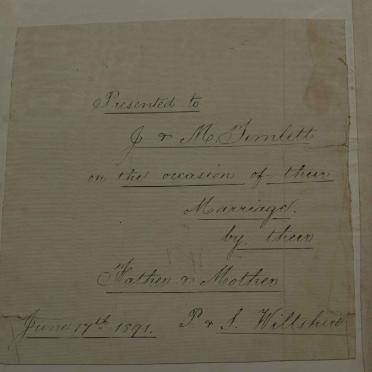 Presented to
J & M. Timlett
on the occasion of their
Marriage.
by their
Father & Mother
P & S. Wiltshire
June 17th 1891.